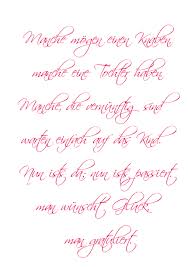 Manche mögen einen Knaben,
manche eine Tochter haben.
Manche, die vernünftig sind
warten einfach auf das Kind.
Nun ists da, nun ists passiert
man wünscht Glück,
man gratuliert.